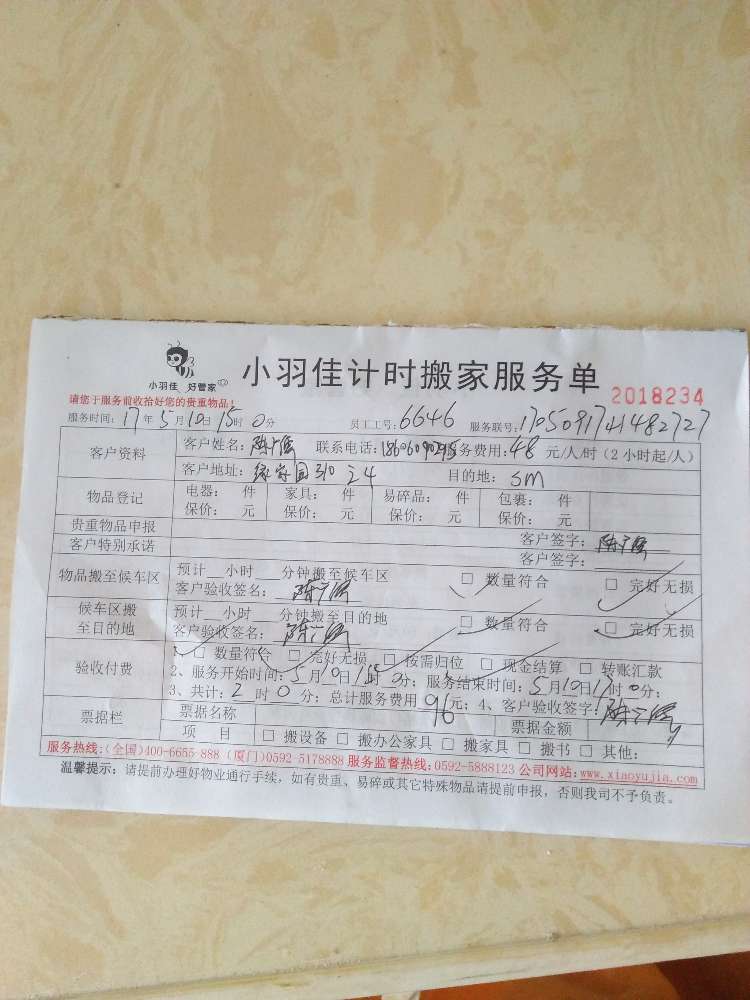 小羽佳 好管家
小羽佳计时搬家服务单 2018234
请您于服务前收拾好您的贵重物品!
服务时间: 17年5月10日15时0分 员工工号: 6646 服务联号: 17050917141482727
客户资料 客户姓名: 联系电话: 服务费用: 48 元/人/时 (2小时起/人)
客户地址: 310 之4 目的地: SM
物品登记 电器: 件 家具: 件 易碎品: 件 包裹: 件
保价: 元 保价: 元 保价: 元 保价: 元
贵重物品申报 客户签字:
客户特别承诺 客户签字:
物品搬至候车区 预计 小时 分钟搬至候车区 □ 数量符合 □ 完好无损
客户验收签名:
候车区搬至目的地 预计 小时 分钟搬至目的地 □ 数量符合 □ 完好无损
客户验收签名:
验收付费 1、□ 数量符合 □ 完好无损 □ 按需归位 □ 现金结算 □ 转账汇款
2、服务开始时间: 5月10日15时0分; 服务结束时间: 5月10日17时0分;
3、共计: 2时0分; 总计服务费用 96元; 4、客户验收签字:
票据栏 票据名称 票据金额
项 目 □ 搬设备 □ 搬办公家具 □ 搬家具 □ 搬书 □ 其他:
服务热线:(全国)400-6655-888 (厦门)0592-5178888 服务监督热线:0592-5888123 公司网站:www.xiaoyujia.com
温馨提示: 请提前办理好物业通行手续, 如有贵重、易碎或其它特殊物品请提前申报, 否则我司不予负责。